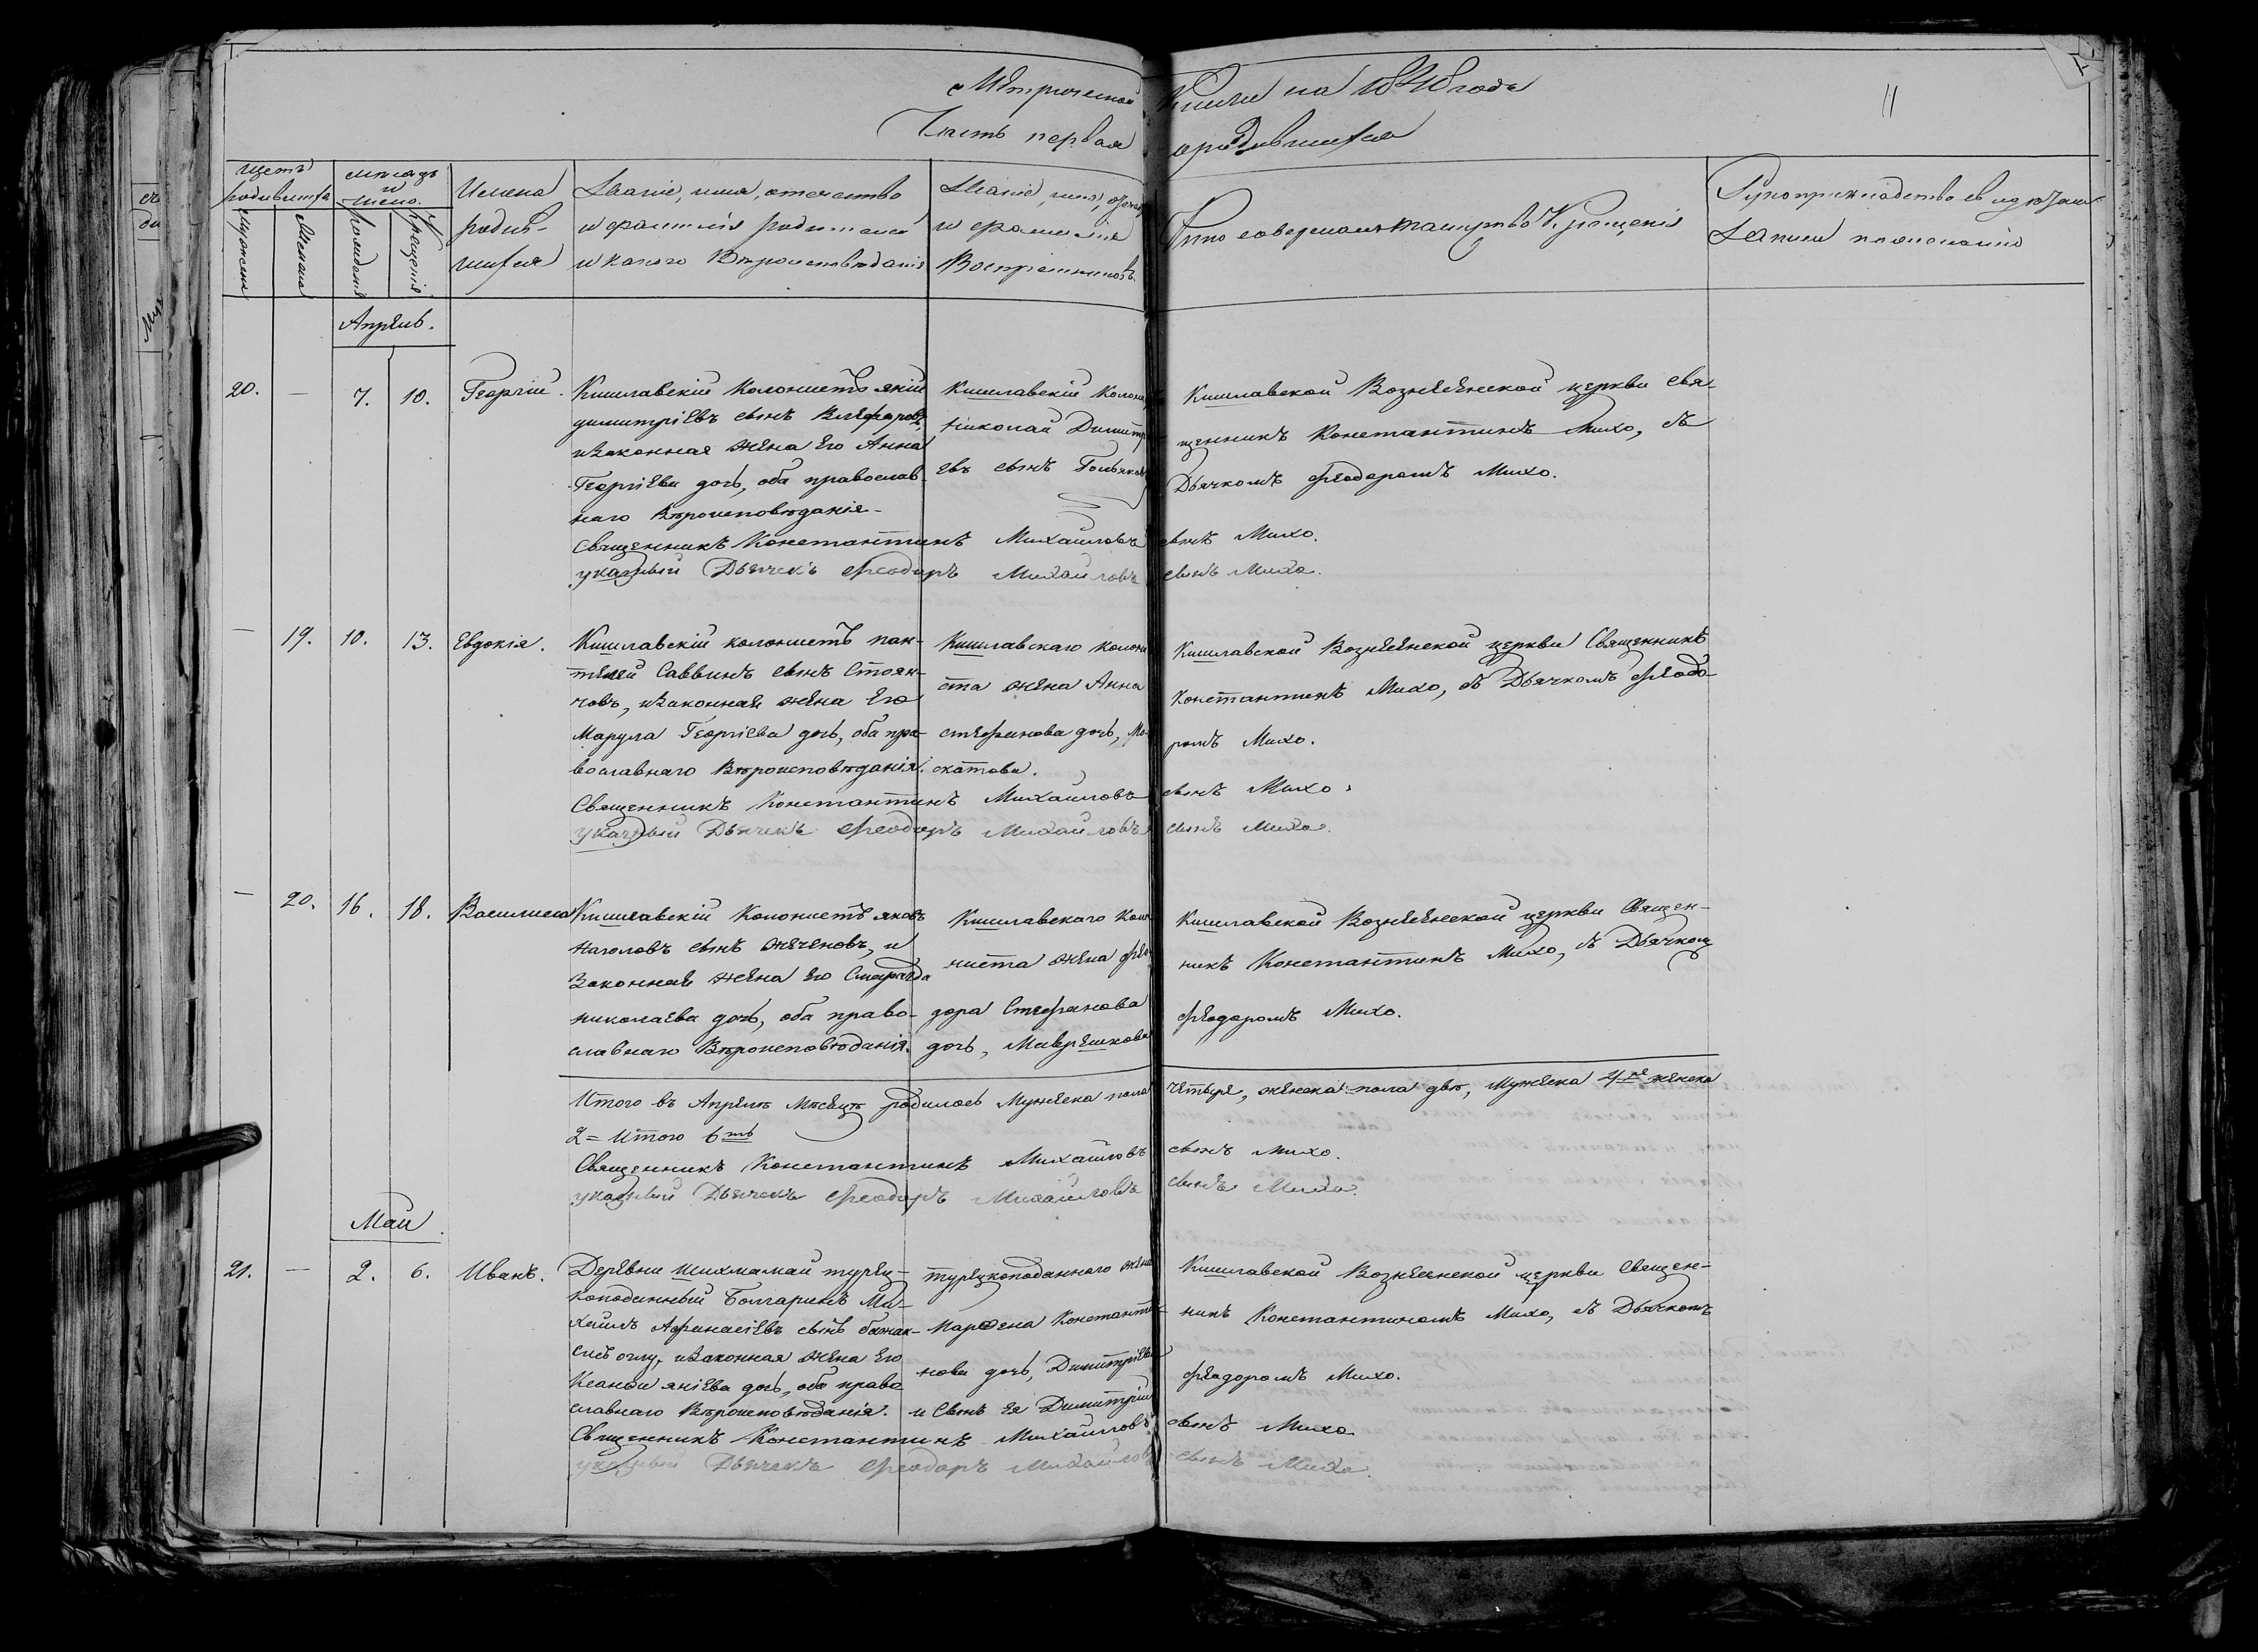 Метрической Книги на 1848 года
Часть первая о родившихся
11
Щетъ родившихся
Мужеска
Женска
Месяцъ и число.
Рождения
Крещенія
Имена родив-
шихся
Званіе, имя, отечество
и фамилія родителей
и какого Вѣроисповѣданія
Званіе, имя, отечес
и фамилія
Воспріемниковъ.
Кто совершалъ таинство Крещенія
Рукоприкладство свидѣтелей
Записи по желанію
Апрель.
20. — 7. 10. Георгій.
Кишлавскій Колонистъ Яній
Димитріевъ сынъ
и законная жена Его Анна
Георгіева дочь, оба православ-
наго Вѣроисповѣданія-
Кишлавскій Колонис
Николай Димитрі
евъ сынъ
Кишлавской Вознесенской церкви Свя-
щенникъ Константинъ Михо, съ
Дьячкомъ Феодоромъ Михо.
Священникъ Константинъ Михайловъ сынъ Михо.
указный Дьячекъ Феодоръ Михайловъ сынъ Михо.
— 19. 10. 13. Евдокія.
Кишлавскій колонистъ Пан-
телей Саввинъ сынъ Стоян-
човъ, и законная жена Его
Марула Георгіева дочь, оба пра-
вославнаго Вѣроисповѣданія.
Кишлавскаго колони
ста жена Анна
Стефанова дочь, Мо-
скатова.
Кишлавской Вознесенской церкви Священникъ
Константинъ Михо, съ Дьячкомъ Феодо-
ромъ Михо.
Священникъ Константинъ Михайловъ сынъ Михо.
указный Дьячекъ Феодоръ Михайловъ сынъ Михо.
— 20. 16. 18. Василиса
Кишлавскій Колонистъ Яковъ
сынъ Жеченовъ, и
Законная жена Его Смарагда
Николаева дочь, оба право-
славнаго Вѣроисповѣданія.
Кишлавскаго Коло
ниста жена Фео
дора Стефанова
дочь, Маврешкова
Кишлавской Вознесенской церкви Священ-
никъ Константинъ Михо, съ Дьячком
Феодоромъ Михо.
Итого въ Апрелѣ Мѣсяцѣ родилось Мужеска пола четыре, женска пола двѣ, Мужеска 4ре женска
2= Итого 6ть
Священникъ Константинъ Михайловъ сынъ Михо.
указный Дьячекъ Феодоръ Михайловъ сынъ Михо.
Май.
21. — 2. 6. Иванъ.
Деревни Шихмамай турец-
коподанный Болгаринъ Ми-
хаилъ Афанасіевъ сынъ
оглу, и законная жена Его
Яніева дочь, оба право
славнаго Вѣроисповѣданія.
турецкоподаннаго жена
Константи-
нова дочь, Димитріева
и Сынъ Ея Димитрій
Кишлавской Вознесенской церкви Священ-
никъ Константиномъ Михо, съ Дьячкомъ
Феодоромъ Михо.
Священникъ Константинъ Михайловъ сынъ Михо
указный Дьячекъ Феодоръ Михайловъ сынъ Михо.